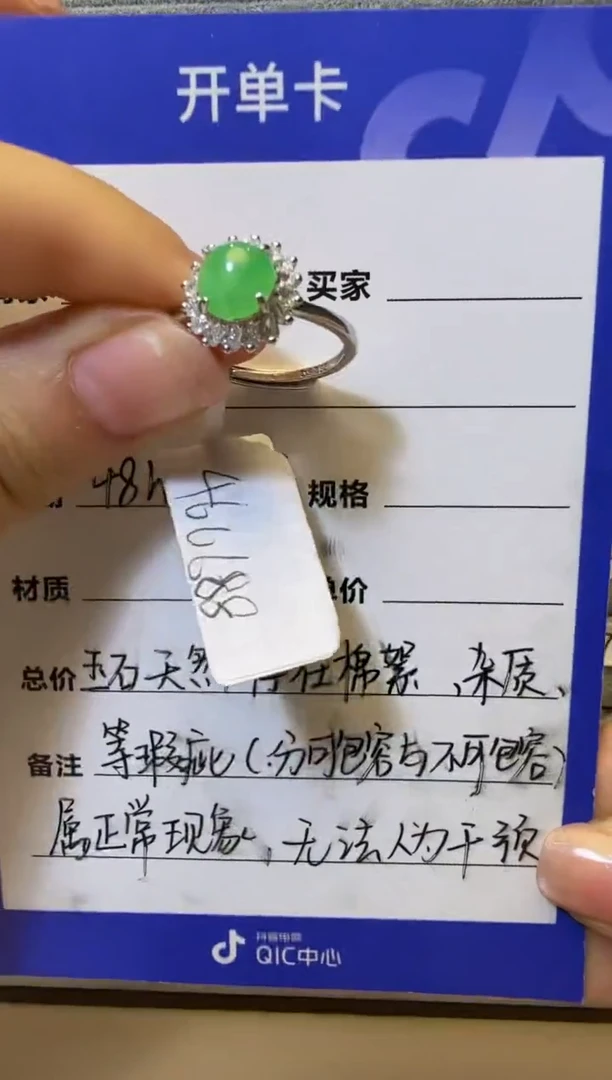 开单卡
买家
48h
规格
466688
材质
价
总价 玉石天然 存在棉絮、杂质、
备注 等瑕疵(分可包容与不可包容)
属正常现象,无法人为干预
抖音电商
QIC中心